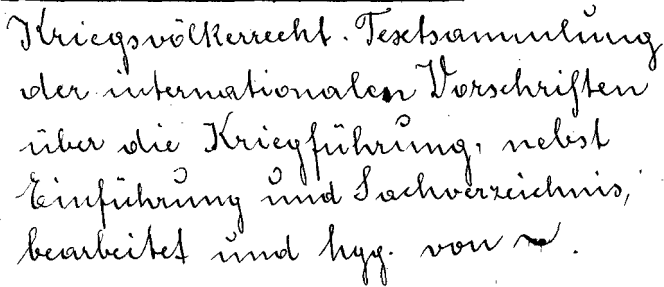 Kriegsvölkerrecht. Textsammlung
der internationalen Vorschriften
über die Kriegführung, nebst
Einführung und Sachverzeichnis,
bearbeitet und hgg. von ~.